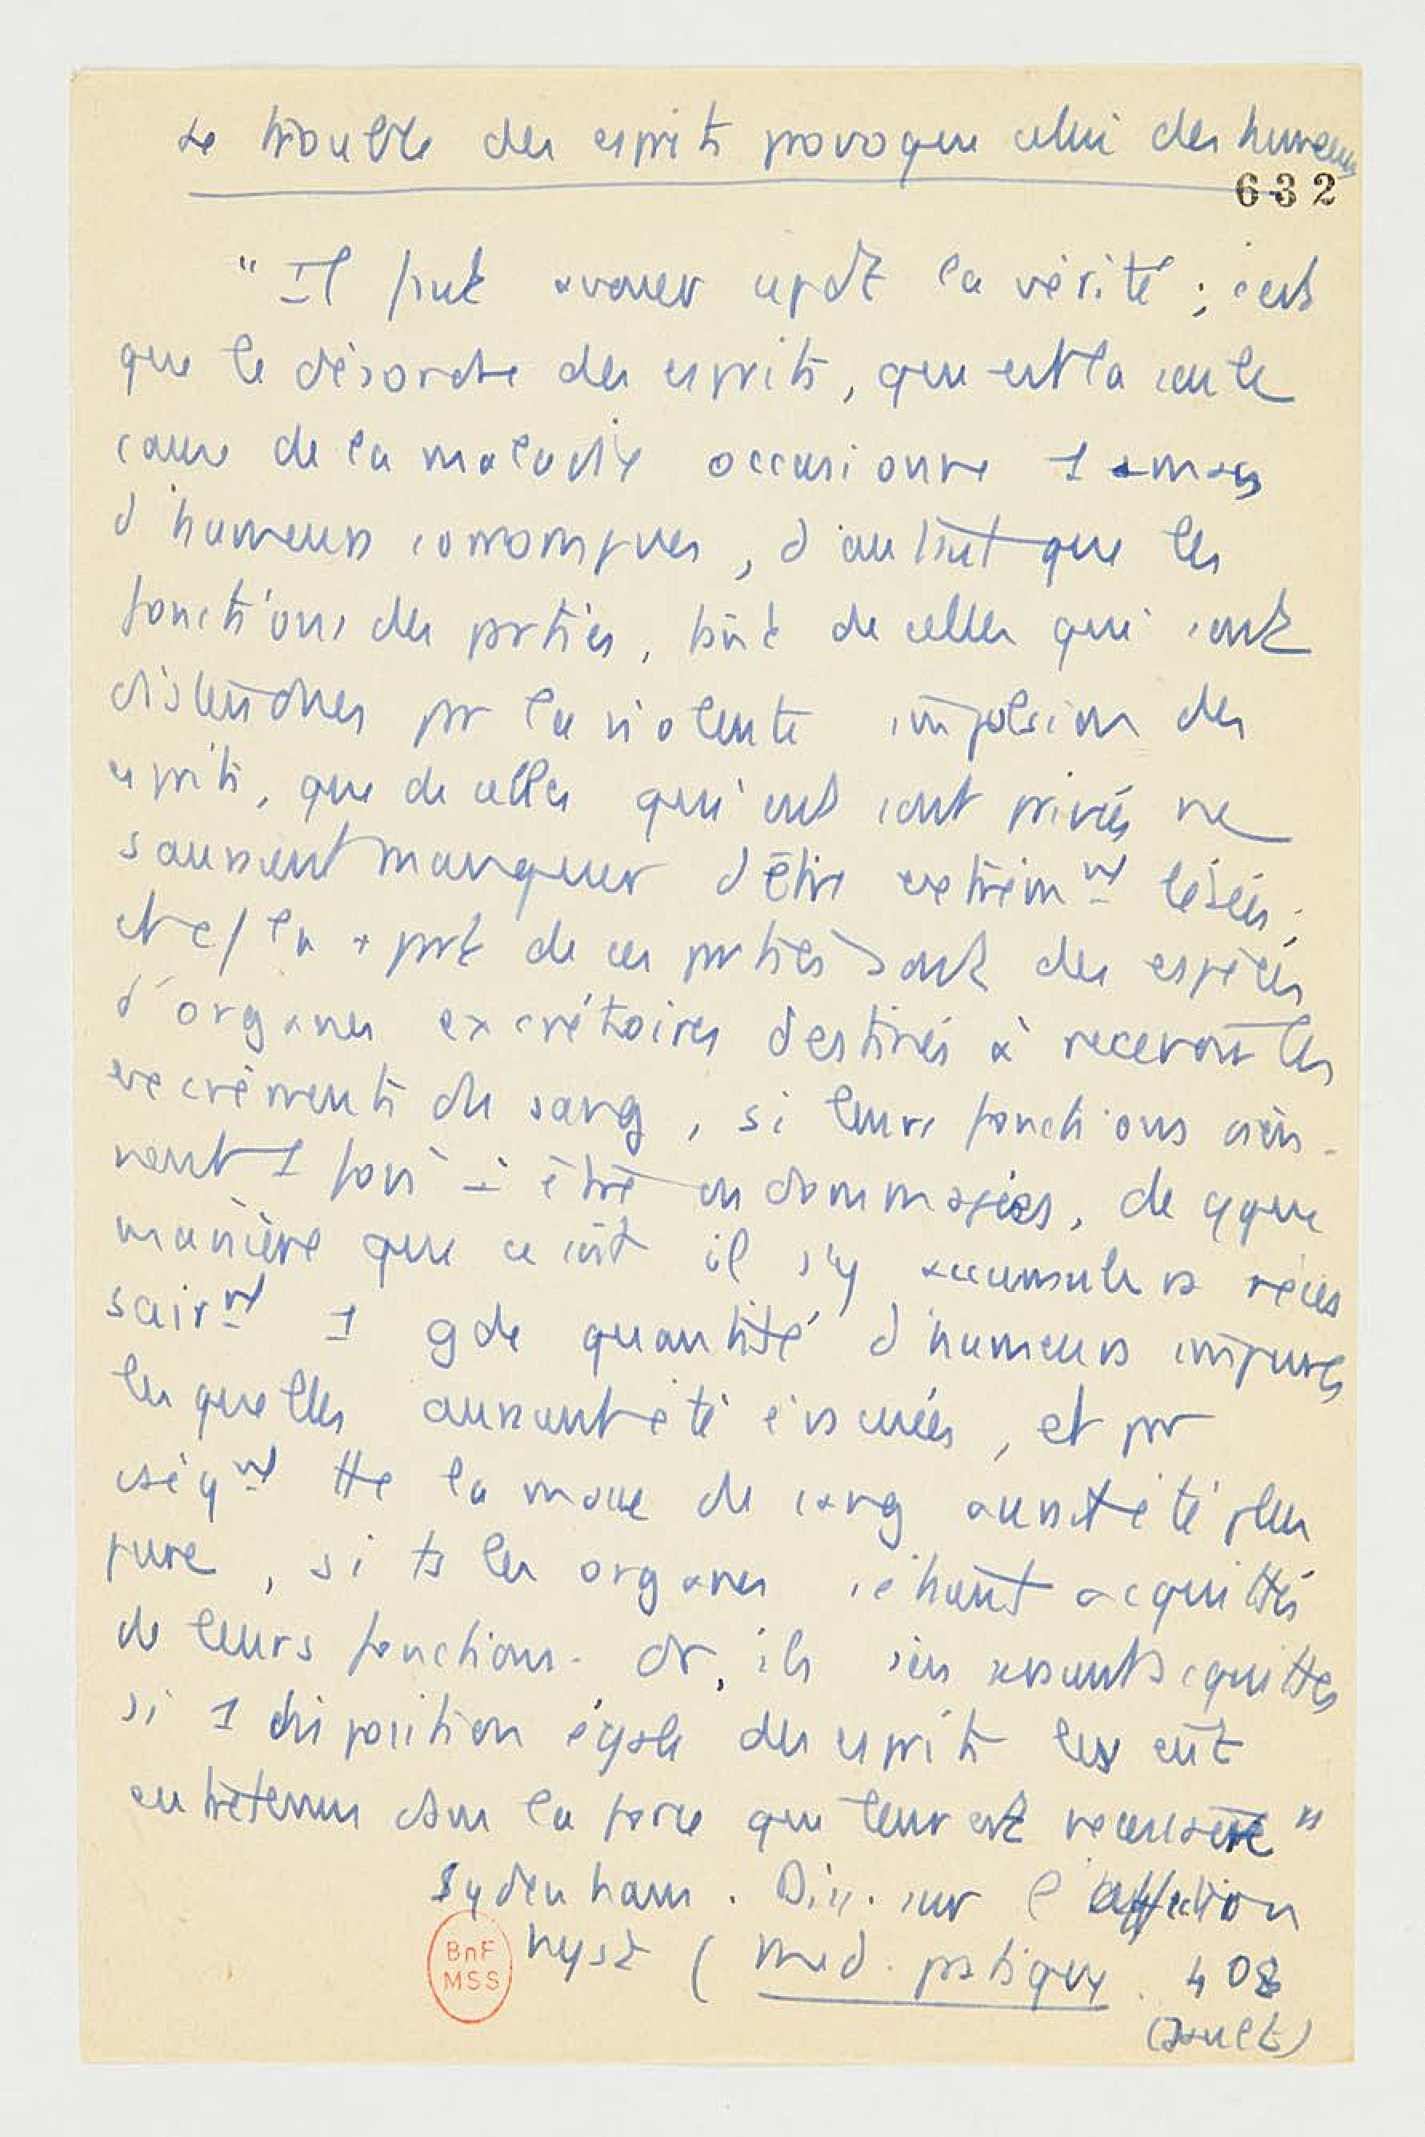 Le trouble des esprits provoque celui des humeurs
632
" Il faut avouer cepdt la vérité ; c'est
que le désordre des esprits, qui est la seule
cause de la maladie occasionne 1 amas
d'humeurs corrompues, d'autant que les
fonctions des parties, tant de celles qui sont
distendues par la violente impulsion des
esprits, que de celles qui en sont privées ne
sauraient manquer d'être extrêmnt lésées ;
et c/ la + part de ces parties sont des espèces
d'organes excrétoires destinés à recevoir les
excréments du sang, si leurs fonctions vien-
nent 1 fois à être endommagées, de qque
manière que ce soit il s'y accumulera néces
sairnt 1 gde quantité d'humeurs impures
lesquelles auraient été évacuées, et par
cséqnt tte la masse du sang aurait été plus
pure, si ts les organes s'étaient acquittés
de leurs fonctions. Or, ils s'en seraient acquittés
si 1 disposition égale des esprits les eût
entretenus dans la force qui leur est nécessaire "
Sydenham. Diss. sur l'affection
hyst (Med. pratique. 408
(Jault)
BnF
MSS